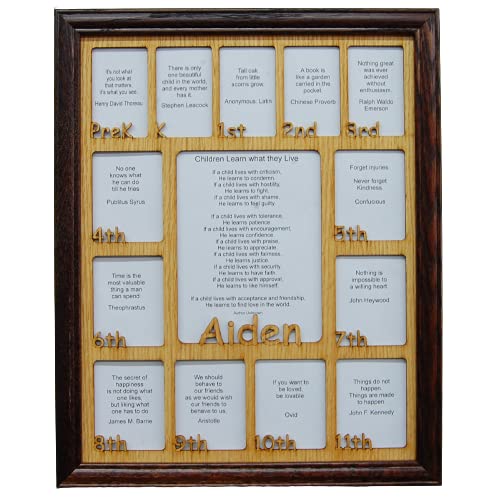 It's not what
you look at
that matters,
it's what you see.
Henry David Thoreau
PreK
There is only
one beautiful
child in the world,
and every mother
has it.
Stephen Leacock
K
Tall oak
from little
acorns grow.
Anonymous Latin
1st
A book is
like a
garden carried
in the pocket.
Chinese Proverb
2nd
Nothing great
was ever
achieved
without
enthusiasm.
Ralph Waldo
Emerson
3rd
No one
knows what
he can do
till he fries
Publilius Syrus
4th
Children Learn what they Live
If a child lives with criticism,
He learns to condemn.
If a child lives with hostility,
He learns to fight.
If a child lives with shame,
He learns to feel guilty.
If a child lives with tolerance,
He learns patience.
If a child lives with encouragement,
He learns confidence.
If a child lives with praise,
He learns to appreciate.
If a child lives with fairness,
He learns justice.
If a child lives with security,
He learns to have faith.
If a child lives with approval,
He learns to like himself.
If a child lives with acceptance and friendship,
He learns to find love in the world.
Author Unknown
Aiden
Forget injuries.
Never forget
Kindness.
Confucious
5th
Time is the
most valuable
thing a man
can spend
Theophrastus
6th
Nothing is
impossible to
a willing heart
John Heywood
7th
The secret of
happiness
is not doing what
one likes,
but liking what
one has to do
James M. Barrie
8th
We should
behave to
our friends
as we would
wish our friends
to behave to us.
Aristotle
9th
If you want to
be loved,
be lovable
Ovid
10th
Things do not
happen.
Things are made
to happen
John F. Kennedy
11th